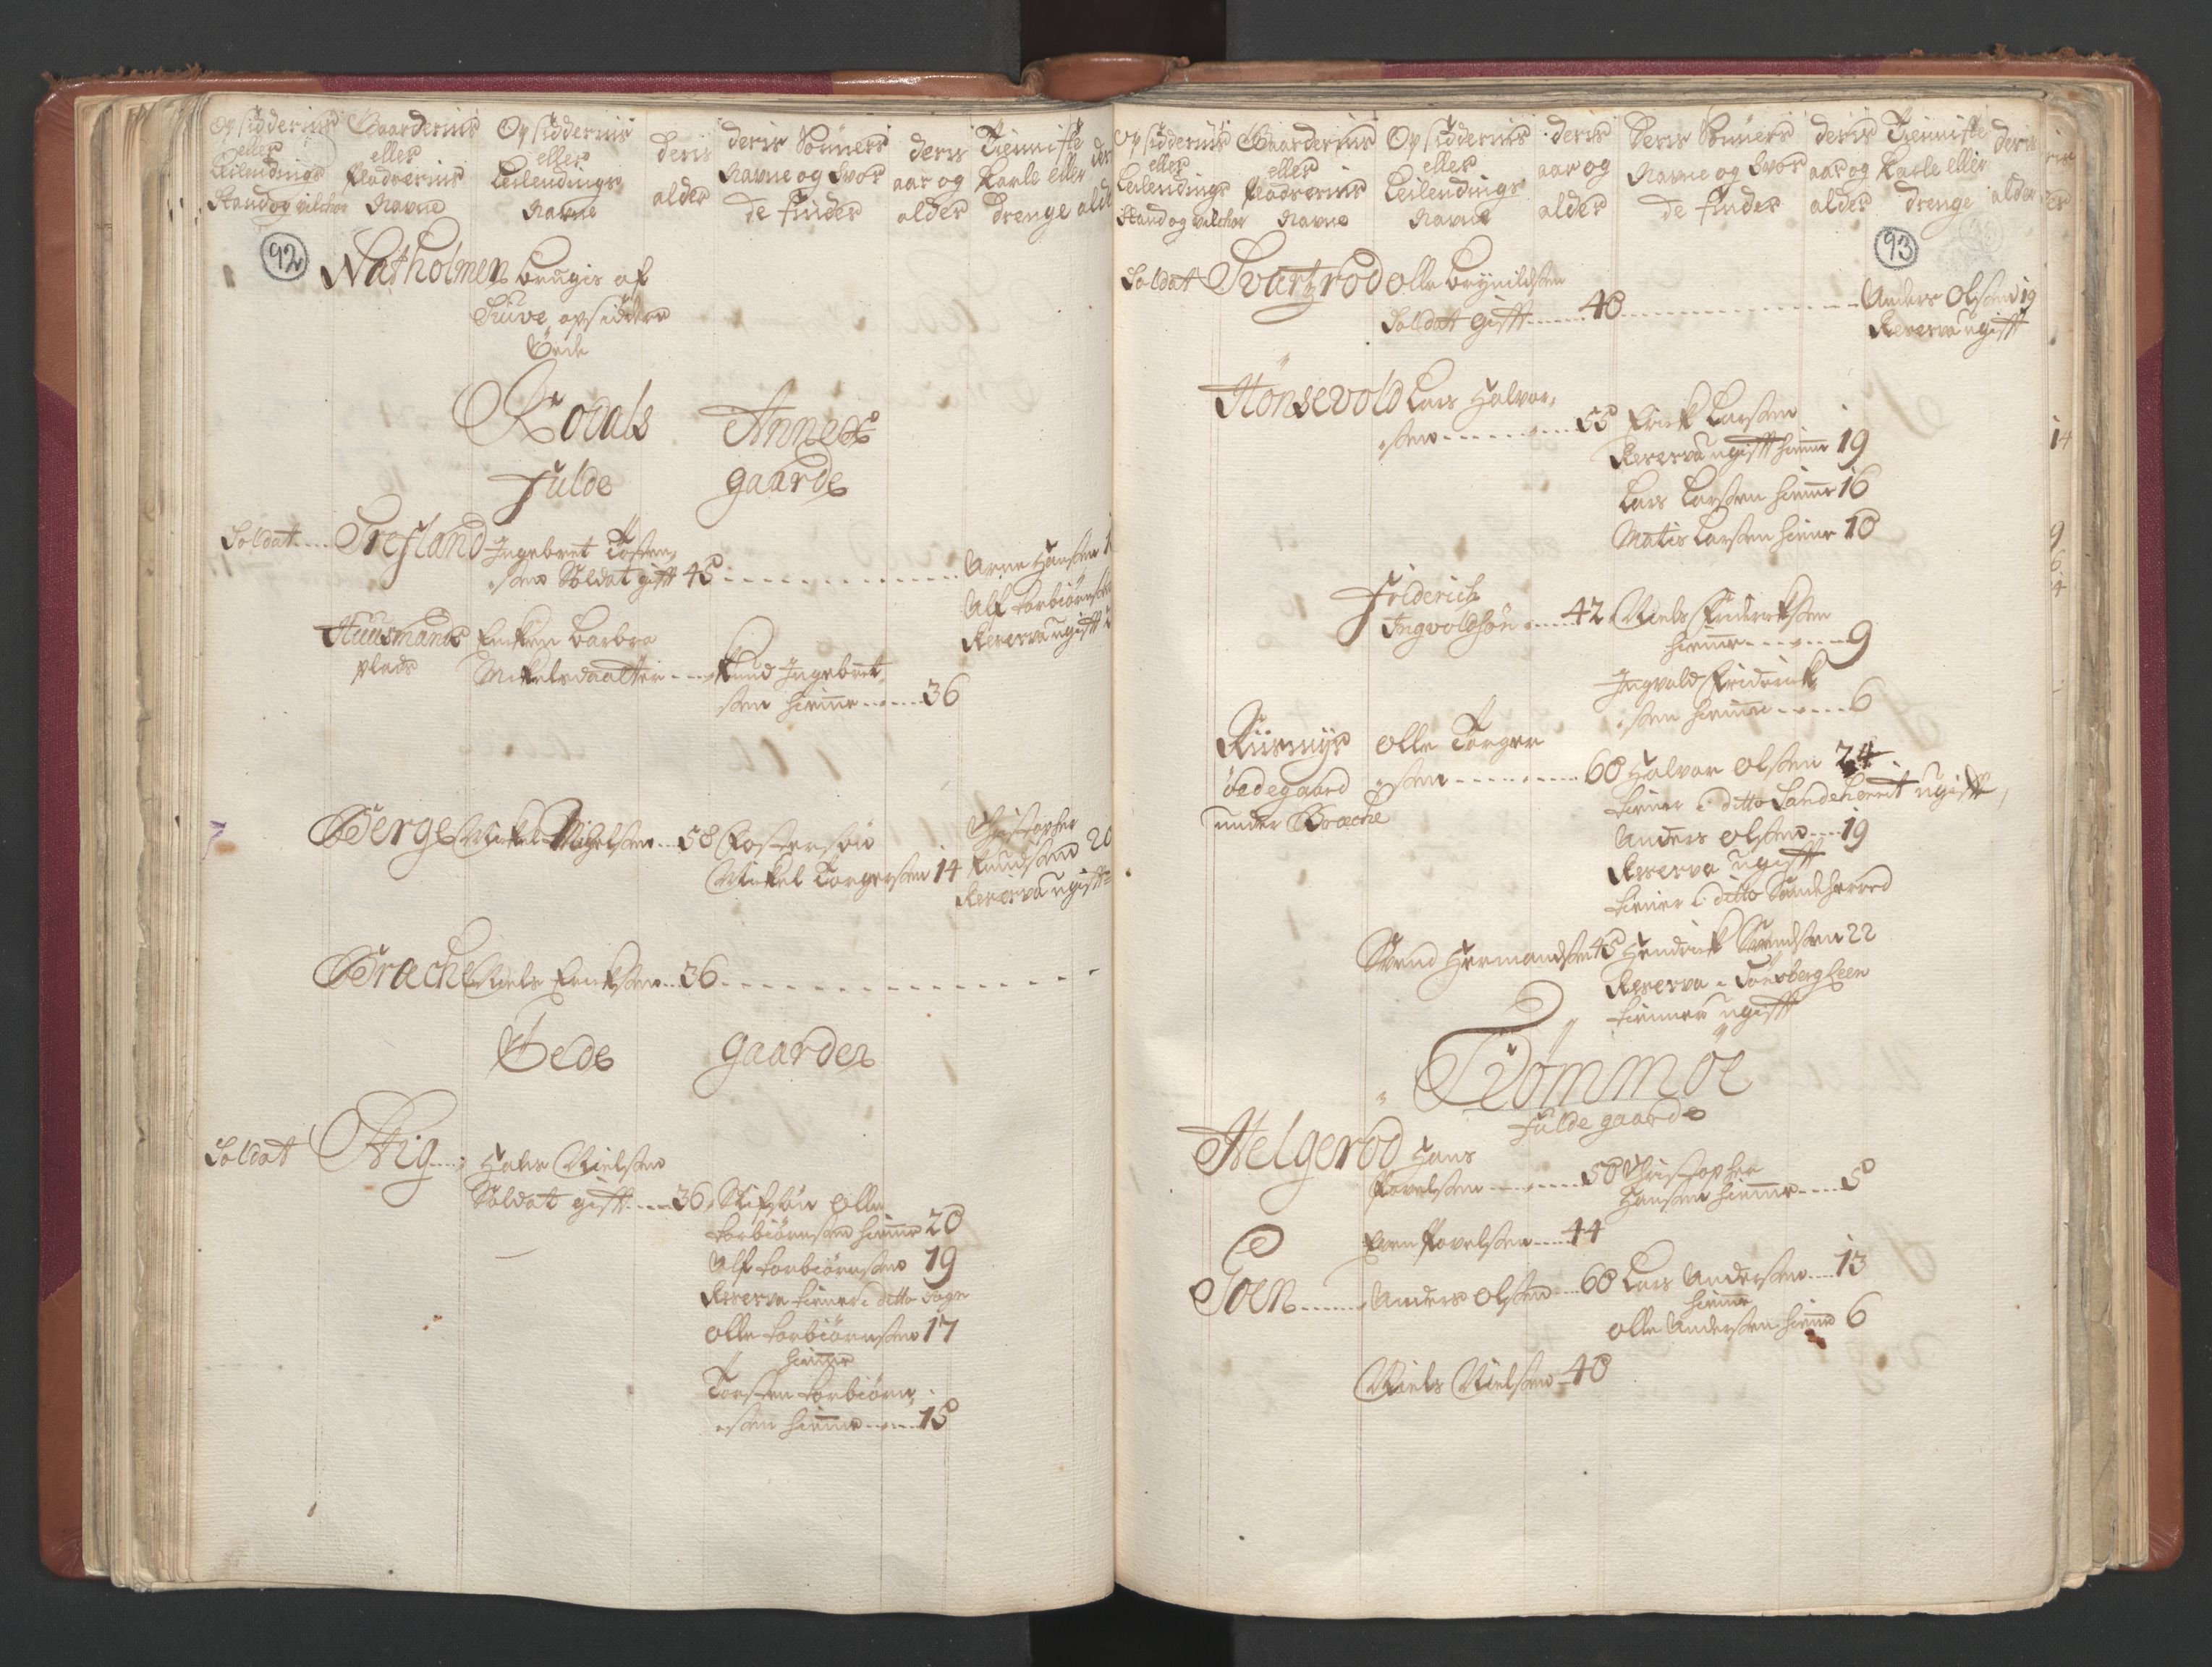 Opsiddernis
eller
Leilendings
Stand og vilchor
Gaardernis
eller
Pladzernis
Nafne
Opsiddernis
eller
Leilendings
Nafne
deris
alder
deris Sønners
Nafne og hvor
de findes
deris
aar og
alder
Tienniste
Karle eller
Drenge
92
Natholmen brugis af
opsiddere
Øede
Rodals Annex
Fulde gaarde
Soldat Trefland Ingebret Tosten
sen Soldat gift 45
Arne Hansen
Alf torbiørnsen
Reserva ugift
Huusmands Encken Barbra
plads Mickelsdaatter Knud Ingebret
sen hiemme 36
Berge Mickel Migelsen 58 Fostersøn
Mickel Torgersen 14
Christopher
Knudsen 20
Reserva ugift
Brache Niels Ericksen 36
Øede gaarder
Soldat Hans Nielsen
Soldat gift 36 Stifsøn Olle
torbiørnsen hiemme 20
Alf torbiørnsen 19
Reserva tiener i ditto Sogn
Olle torbiørnsen 17
hiemme
Torsten torbiørn
sen hiemme 15
Opsiddernis
eller
Leilendings
Stand og vilchor
Gaardernis
eller
Pladzernis
Nafne
Opsiddernis
eller
Leilendings
Nafne
deris
aar og
alder
Deris Sønners
Nafne og hvor
de findes
deris
aar og
alder
Tienniste
Karle eller
Drenge
deris
alder
93
Soldat Svartzrod Olle Brynildsen
Soldat gift 40
Anders Olsen 19
Reserva ugift
Hønsevold Lars Halvor
sen 55 Erick Larsen
Reserva ugift hieme 19
Lars Larsen hieme 16
Matis Larsen hieme 10
Friderich
Ingvoldsøn 42 Niels Fridericksen
hieme 9
Ingvald Friderick
sen hieme 6
Riismyr Olle Torger
ødegaard sen 60 Halvor Olsen 24
under Brache tiener i ditto Sandeherrit ugift
Anders Olsen 19
Reserva ugift
tiener i ditto Sandeherred
Svend Hermandsen 45 Hendrick Svendsen 22
Reserva i Tønsberg Leen
tienner ugift
Tiømmøe
Fulde gaarde
Helgerod Hans
Povelsen 50 Christopher
Hansen hiemme 5
Even Povelsen 44
Goen Anders Olsen 60 Lars Andersen 13
hieme
Olle Andersen hieme 6
Niels Nielsen 40